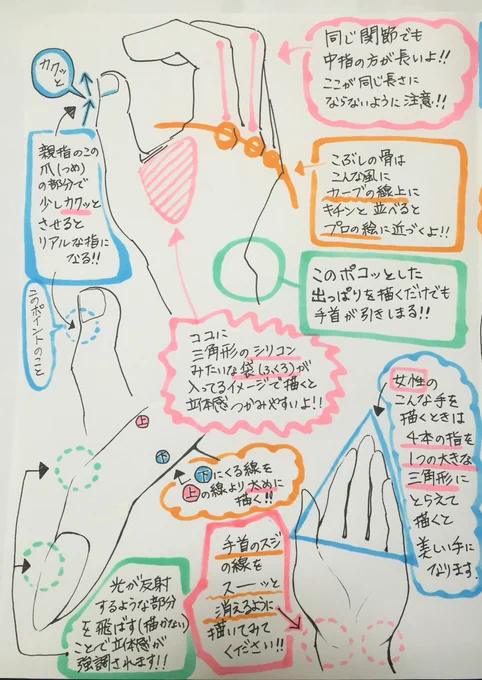 同じ関節でも
中指の方が長いよ!!
ここが同じ長さに
ならないように注意!!
カクッと
親指のこの
爪(つめ)
の部分で
少しカクッと
させると
リアルな指に
なる!!
こぶしの骨は
こんな風に
カーブの線上に
キチンと並べると
プロの絵に近づくよ!!
このポコッとした
出っぱりを描くだけでも
手首が引きしまる!!
このポイントのこと
ココに
三角形のシリコン
みたいな袋(ふくろ)が
入ってるイメージで描くと
立体感つかみやすいよ!!
女性の
こんな手を
描くときは
4本の指を
1つの大きな
三角形に
とらえて
描くと
美しい手に
なります.
上
下
下にくる線を
上の線より太めに
描く!!
手首のスジ
の線を
スーーッと
消えるように
描いてみて
ください!!
光が反射
するような部分
を飛ばす(描かない)
ことで立体感が
強調されます!!